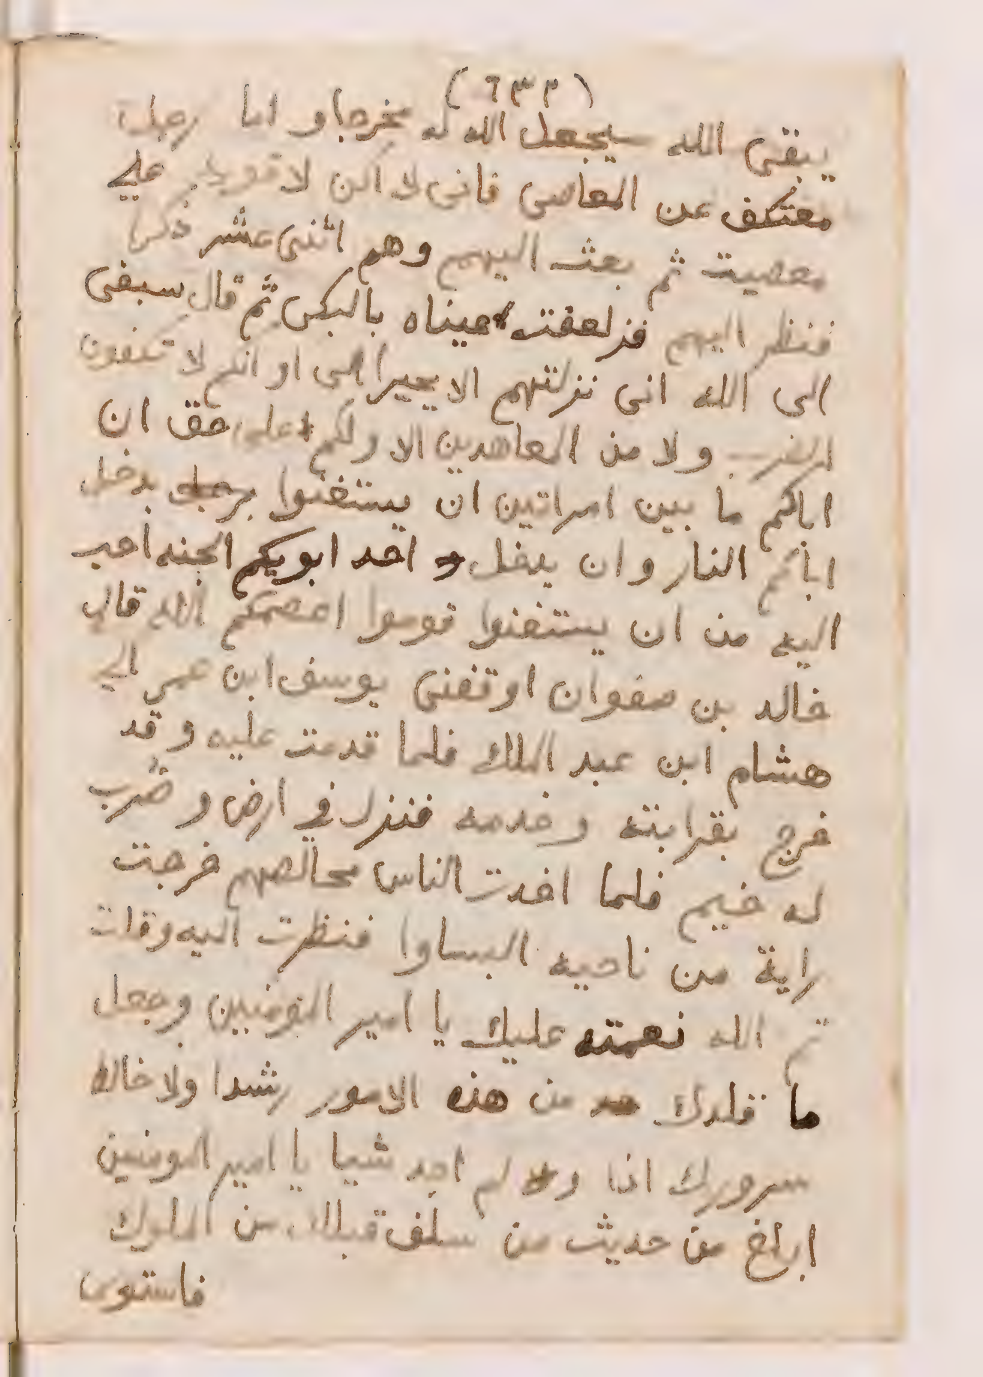 (٦٣٣)
يبقى الله سيجعل الله له مخرجا و اما رجل
معتكف عن المعاصى فانى لا اكن لا قويه على
معصيت ثم بعث اليهم وهم اثنى عشر ذكرا
فنظر اليهم فزلعفت عيناه بالبكى ثم قال سبفى
الى الله انى نزلتهم الا يحير الى او انكم لا تكفون
ولا من العاهدين الا ولكم على حق ان
اباكم ما بين امراتين ان يستغنوا برجل يدخل
اباكم النار وان يدخل احد ابويكم الجنه احب
اليه من ان يستغنوا قوموا اعصمكم الله قال
خالد بن صفوان اوقفنى يوسف ابن عمر الى
هشام ابن عبد الملك فلما قدمت عليه و قد
خرج بقرابته و خدمه فنزل في ارض و ضرب
له خيم فلما اخدت الناس مجالصهم خرجت
راية من ناحيه البساوا فنظرت اليه وقلت
تم الله نعمته عليك يا امير المومنين وجعل
ما قلدك من هذه الامور رشدا ولا خالط
سرورك اذا و لم اجد شيا يا امير المومنين
ابلغ من حديث من سلف قبلك من الملوك
فاستوى